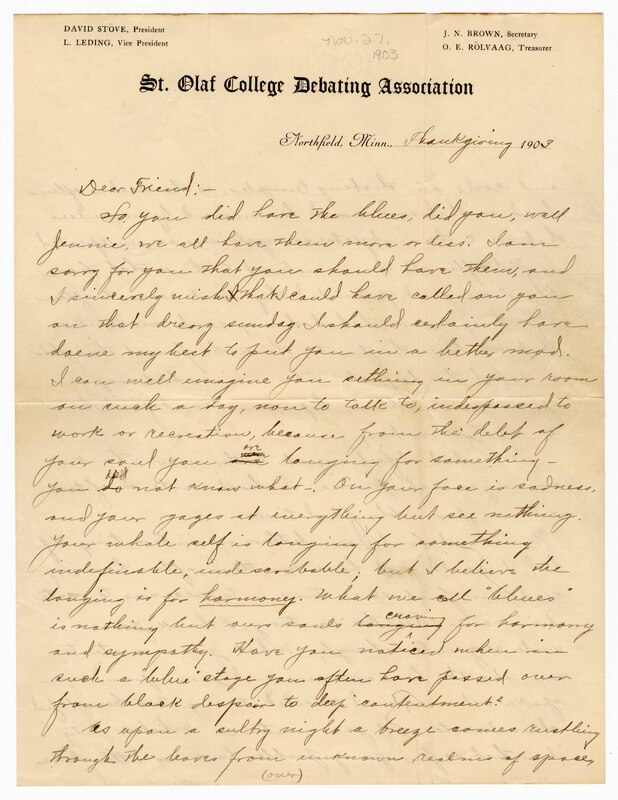 DAVID STOVE, President
L. LEDING, Vice President
J. N. BROWN, Secretary
O. E. ROLVAAG, Treasurer
Nov. 27,
1903
St. Olaf College Debating Association
Northfield, Minn., Thanksgiving 1903
Dear Friend:—
So you did have the blues, did you, well
Jennie, we all have them more or less. I am
sorry for you that you should have them, and
I sincerely wish that I could have called on you
on that dreary sunday. I should certainly have
doene my best to put you in a bether mod.
I can well imagine you sithing in your room
on such a day, non to talk to, indisposed to
work or recreation, because from the debt of
your soul you are longing for something —
you do not know what —. On your face is sadness,
and your gages at everything but see nothing.
Your whole self is longing for something
indefinable, indescribable; but I believe the
longing is for harmoney. What we call "blues"
is nothing but ours souls longing craving for harmony
and sympathy. Have you noticed when in
such a "blue" stage you often have passed over
from black despair to deep contentment?
As upon a sultry night a breeze comes rustling
through the leaves from unknown realms of space,
(over)